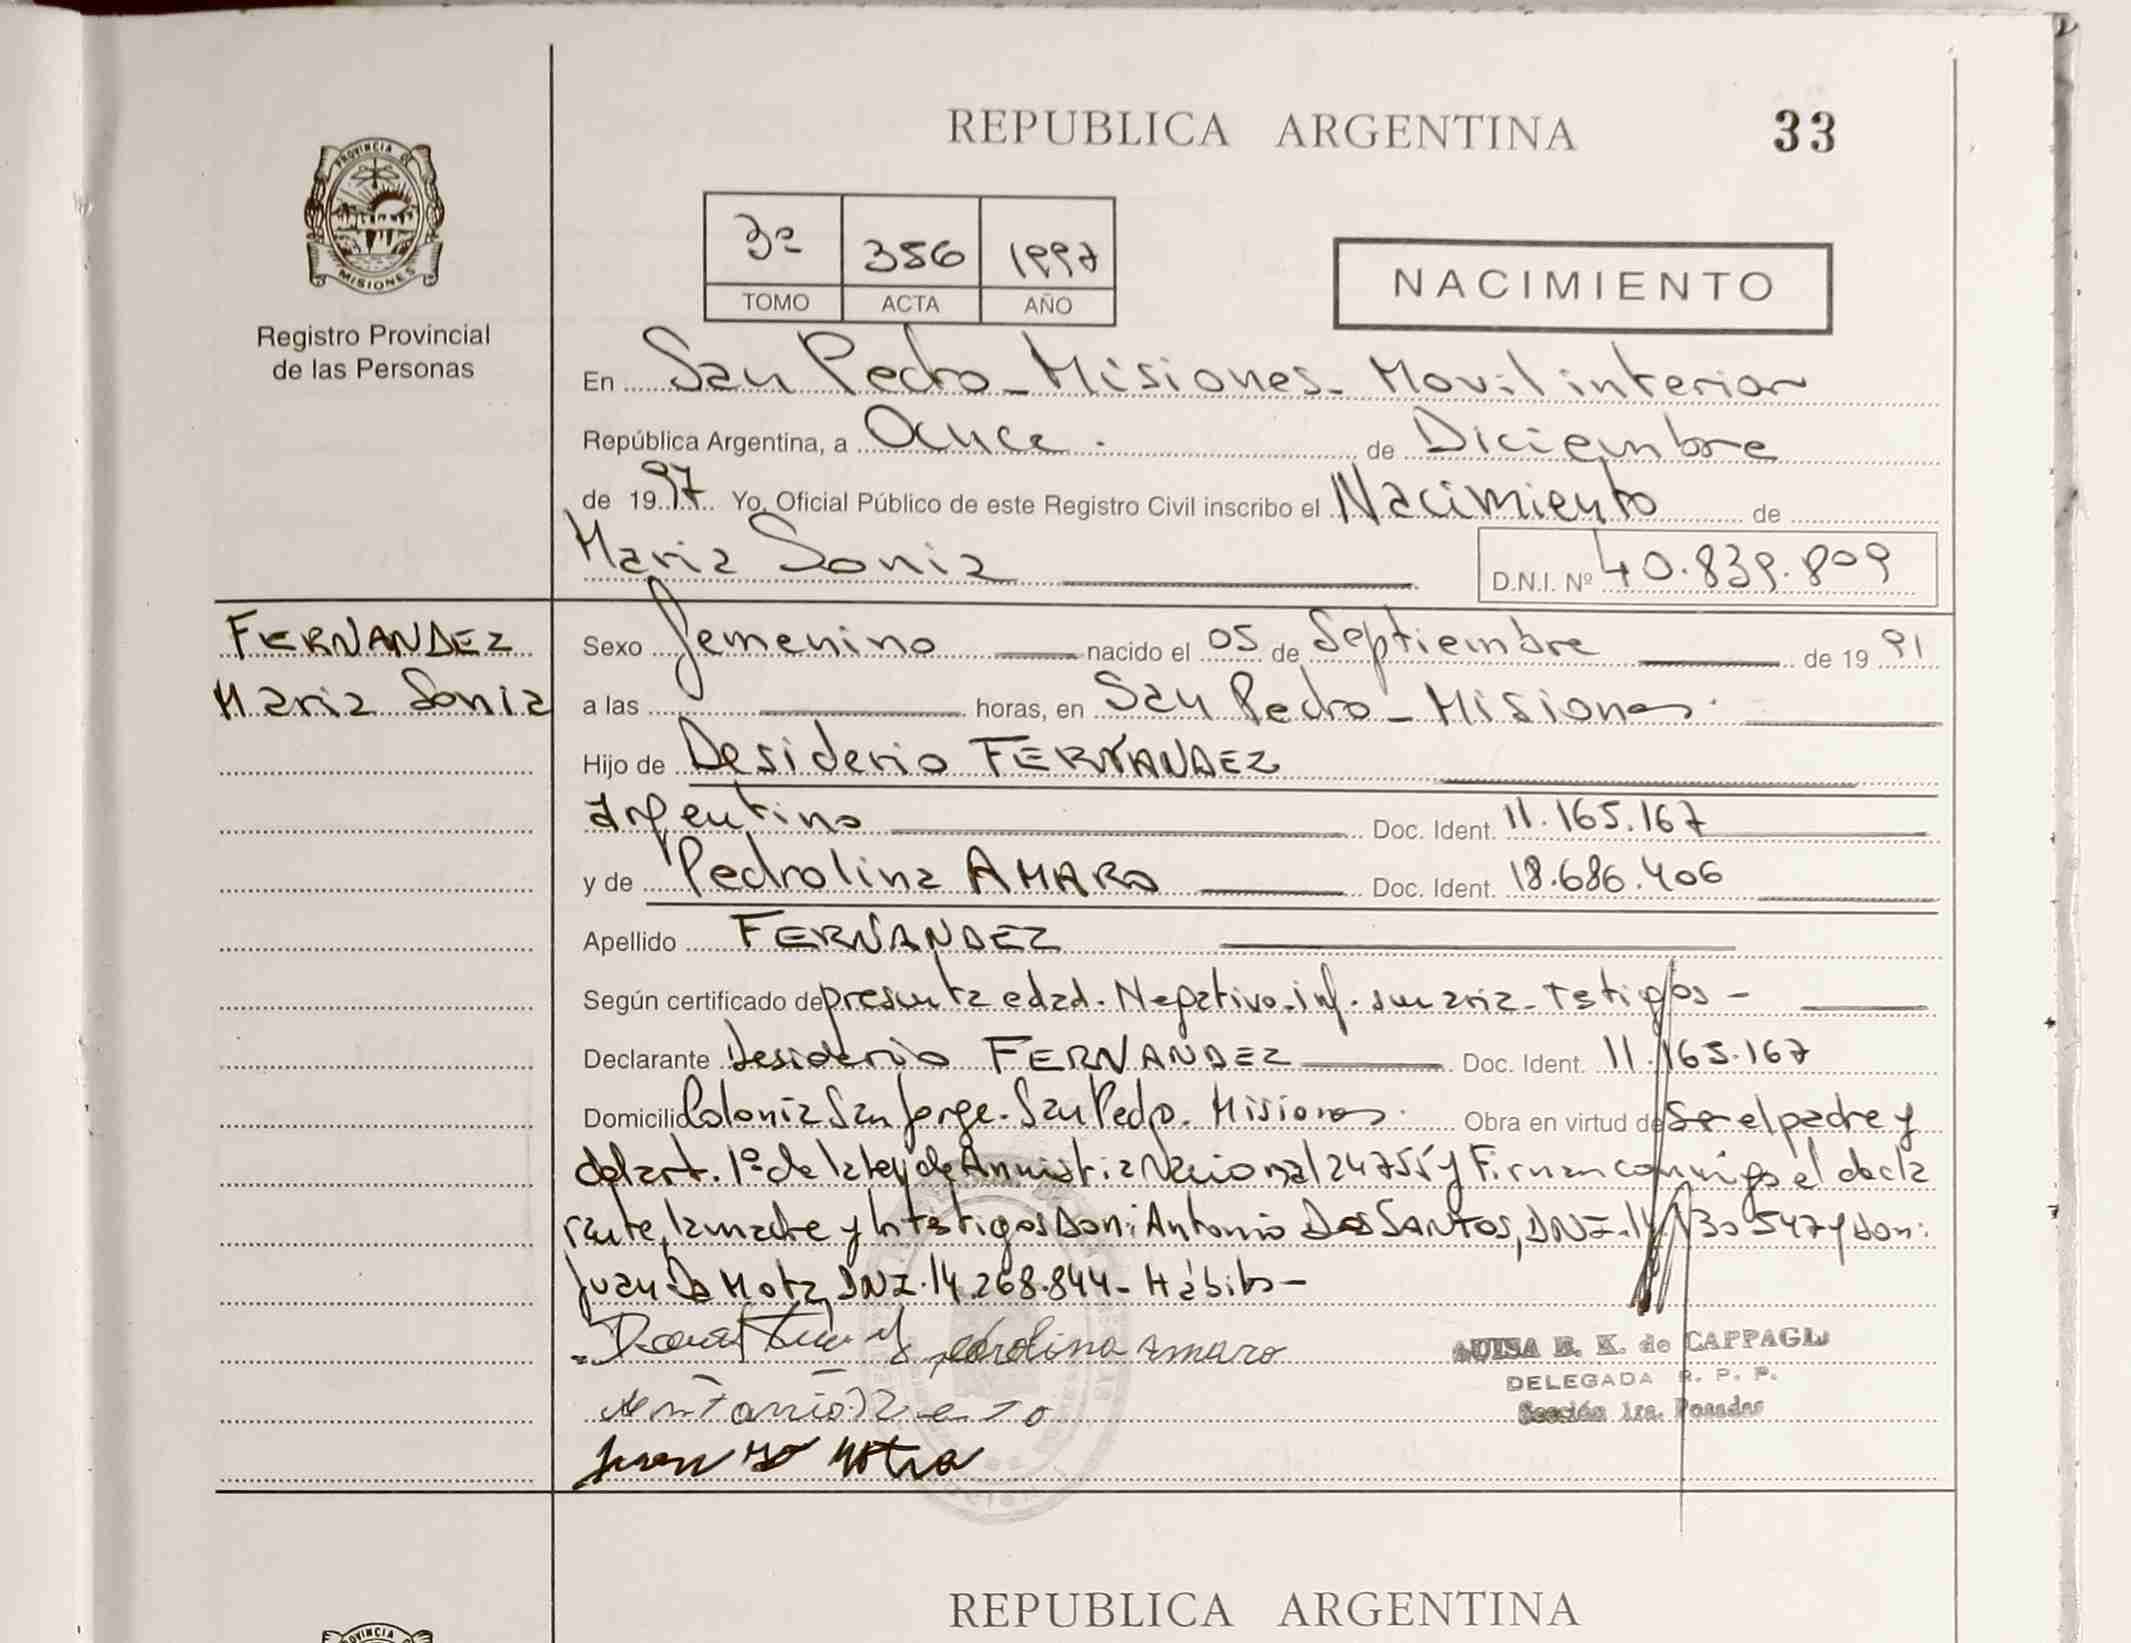 REPUBLICA ARGENTINA 33
PROVINCIA DE
MISIONES
Registro Provincial
de las Personas
3º 356 1997
TOMO ACTA AÑO
NACIMIENTO
En San Pedro - Misiones - Movil interior
República Argentina, a Once de Diciembre
de 1997 Yo, Oficial Público de este Registro Civil inscribo el Nacimiento de
Maria Sonia D.N.I. Nº 40.839.809
FERNANDEZ
Maria Sonia
Sexo Femenino nacido el 05 de Septiembre de 19 91
a las horas, en San Pedro - Misiones.
Hijo de Desiderio FERNANDEZ
argentino Doc. Ident. 11.165.167
y de Pedrolina AMARO Doc. Ident. 18.686.406
Apellido FERNANDEZ
Según certificado de presunta edad. Negativo. inf. sumaria - Testigos -
Declarante Desiderio FERNANDEZ Doc. Ident. 11.165.167
Domicilio Colonia San Jorge - San Pedro - Misiones. Obra en virtud de Ser el padre y
del art. 1º de la ley de Amnistia Nacional 24755 y Firman conmigo el decla
rante, la madre y los testigos Don: Antonio Dos SANTOS, DNI. 30 547 y don:
Juan Da Mota, DNI. 14.268.844 - Hábito -
pedrolina amaro
LUISA B. K. de CAPPAGLI
DELEGADA R. P. P.
Sección 1ra. Posadas
REPUBLICA ARGENTINA